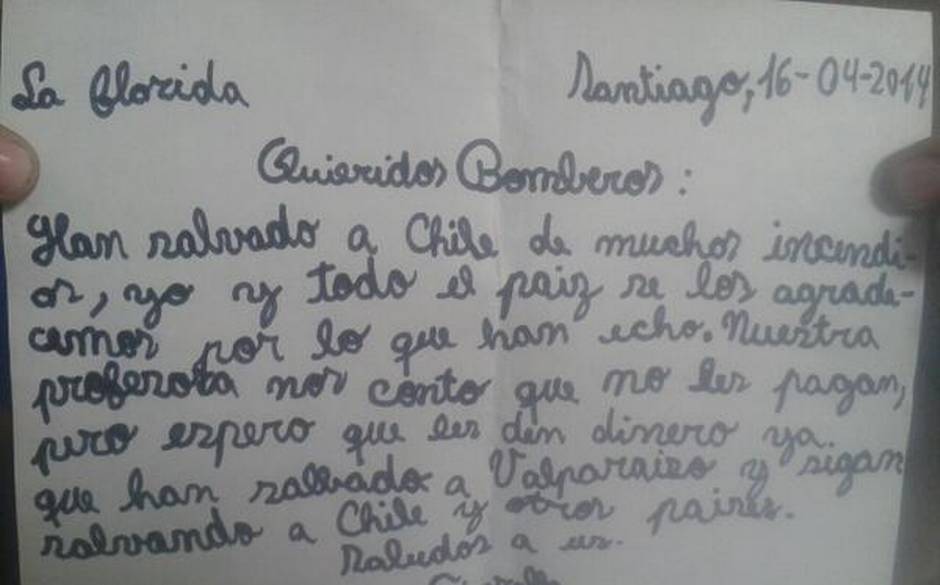 La Florida
Santiago, 16-04-2014
Quieridos Bomberos:
Han salvado a Chile de muchos incendi-
os, yo y todo el paiz se los agrade-
cemos por lo que han echo. Nuestra
profesora nos conto que no les pagan,
pero espero que les den dinero ya.
que han salvado a Valparaizo y sigan
salvando a Chile y otros paises.
Saludos a us.